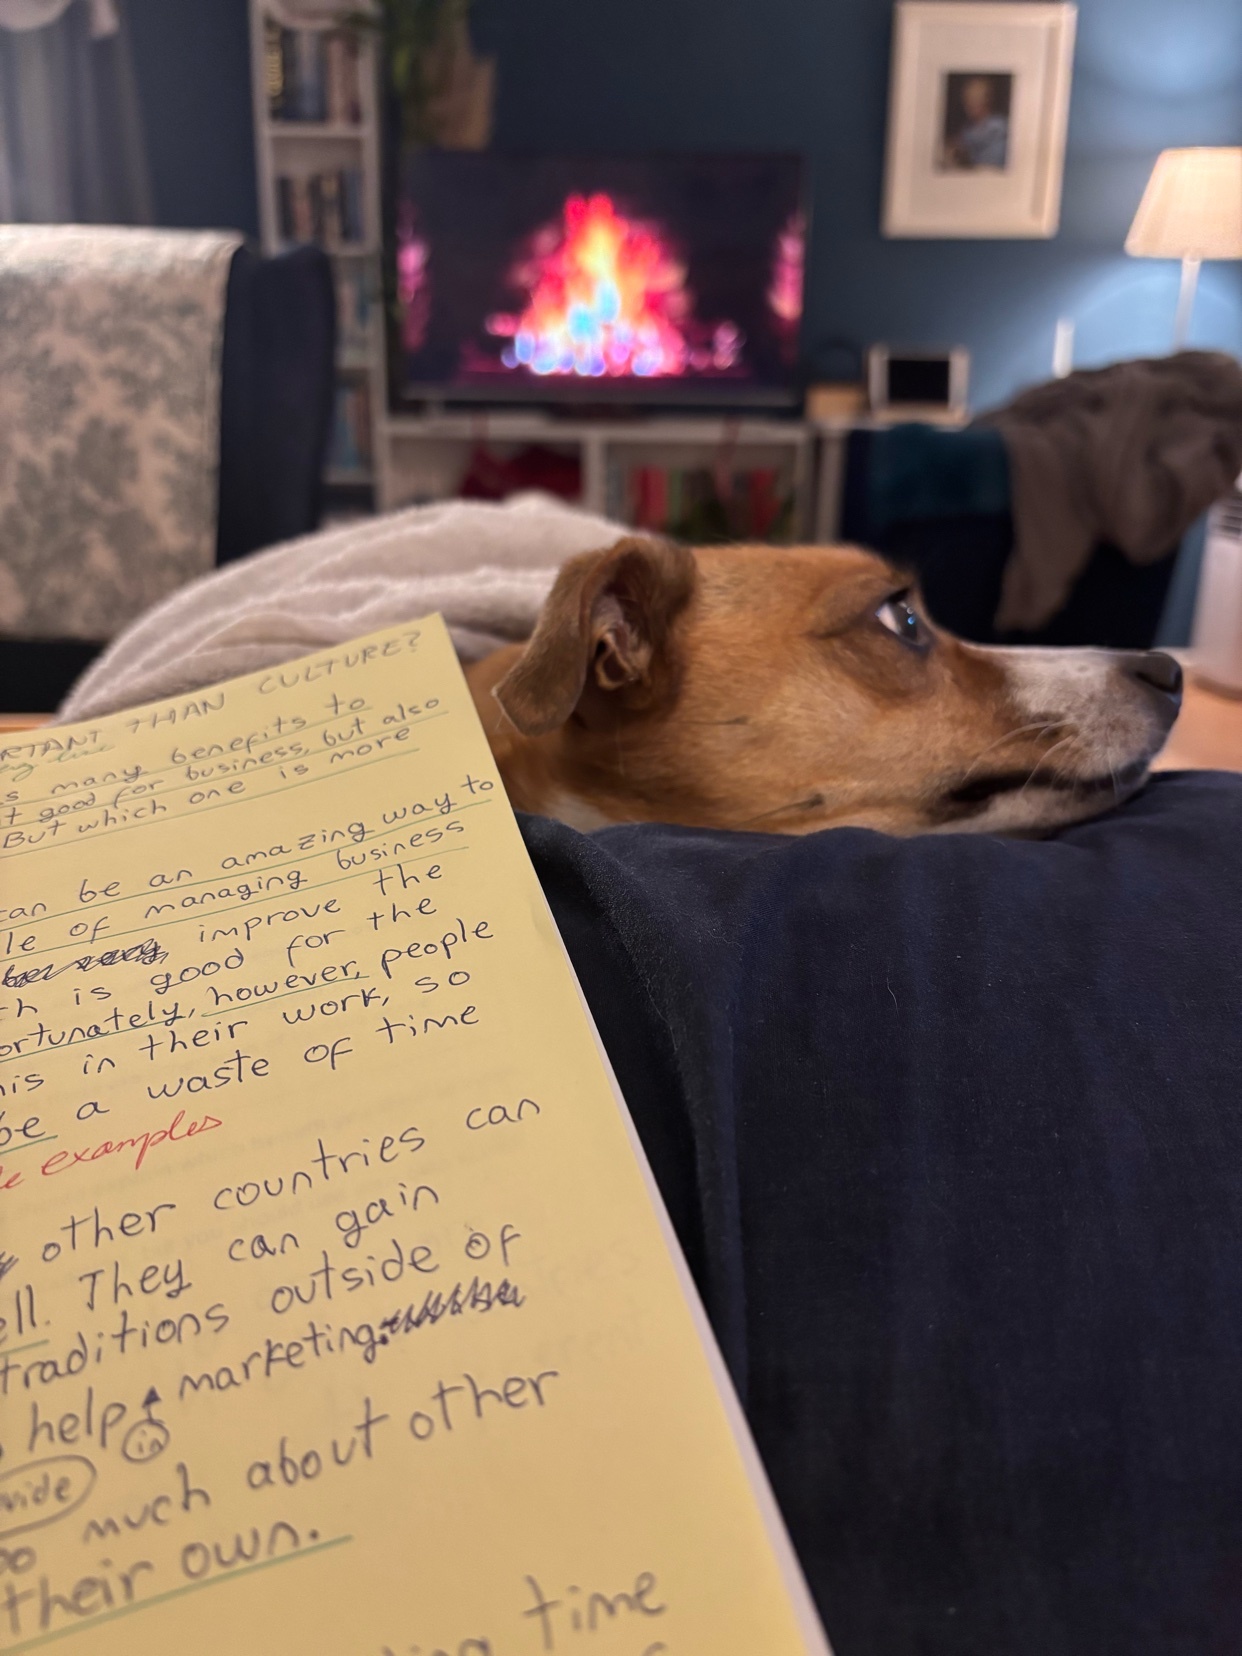 RTANT THAN CULTURE?
s many benefits to
t good for business, but also
But which one is more
can be an amazing way to
le of managing business
improve the
th is good for the
ortunately, however, people
his in their work, so
be a waste of time
examples
other countries can
ell. They can gain
traditions outside of
help in marketing.
vide
oo much about other
their own.
time